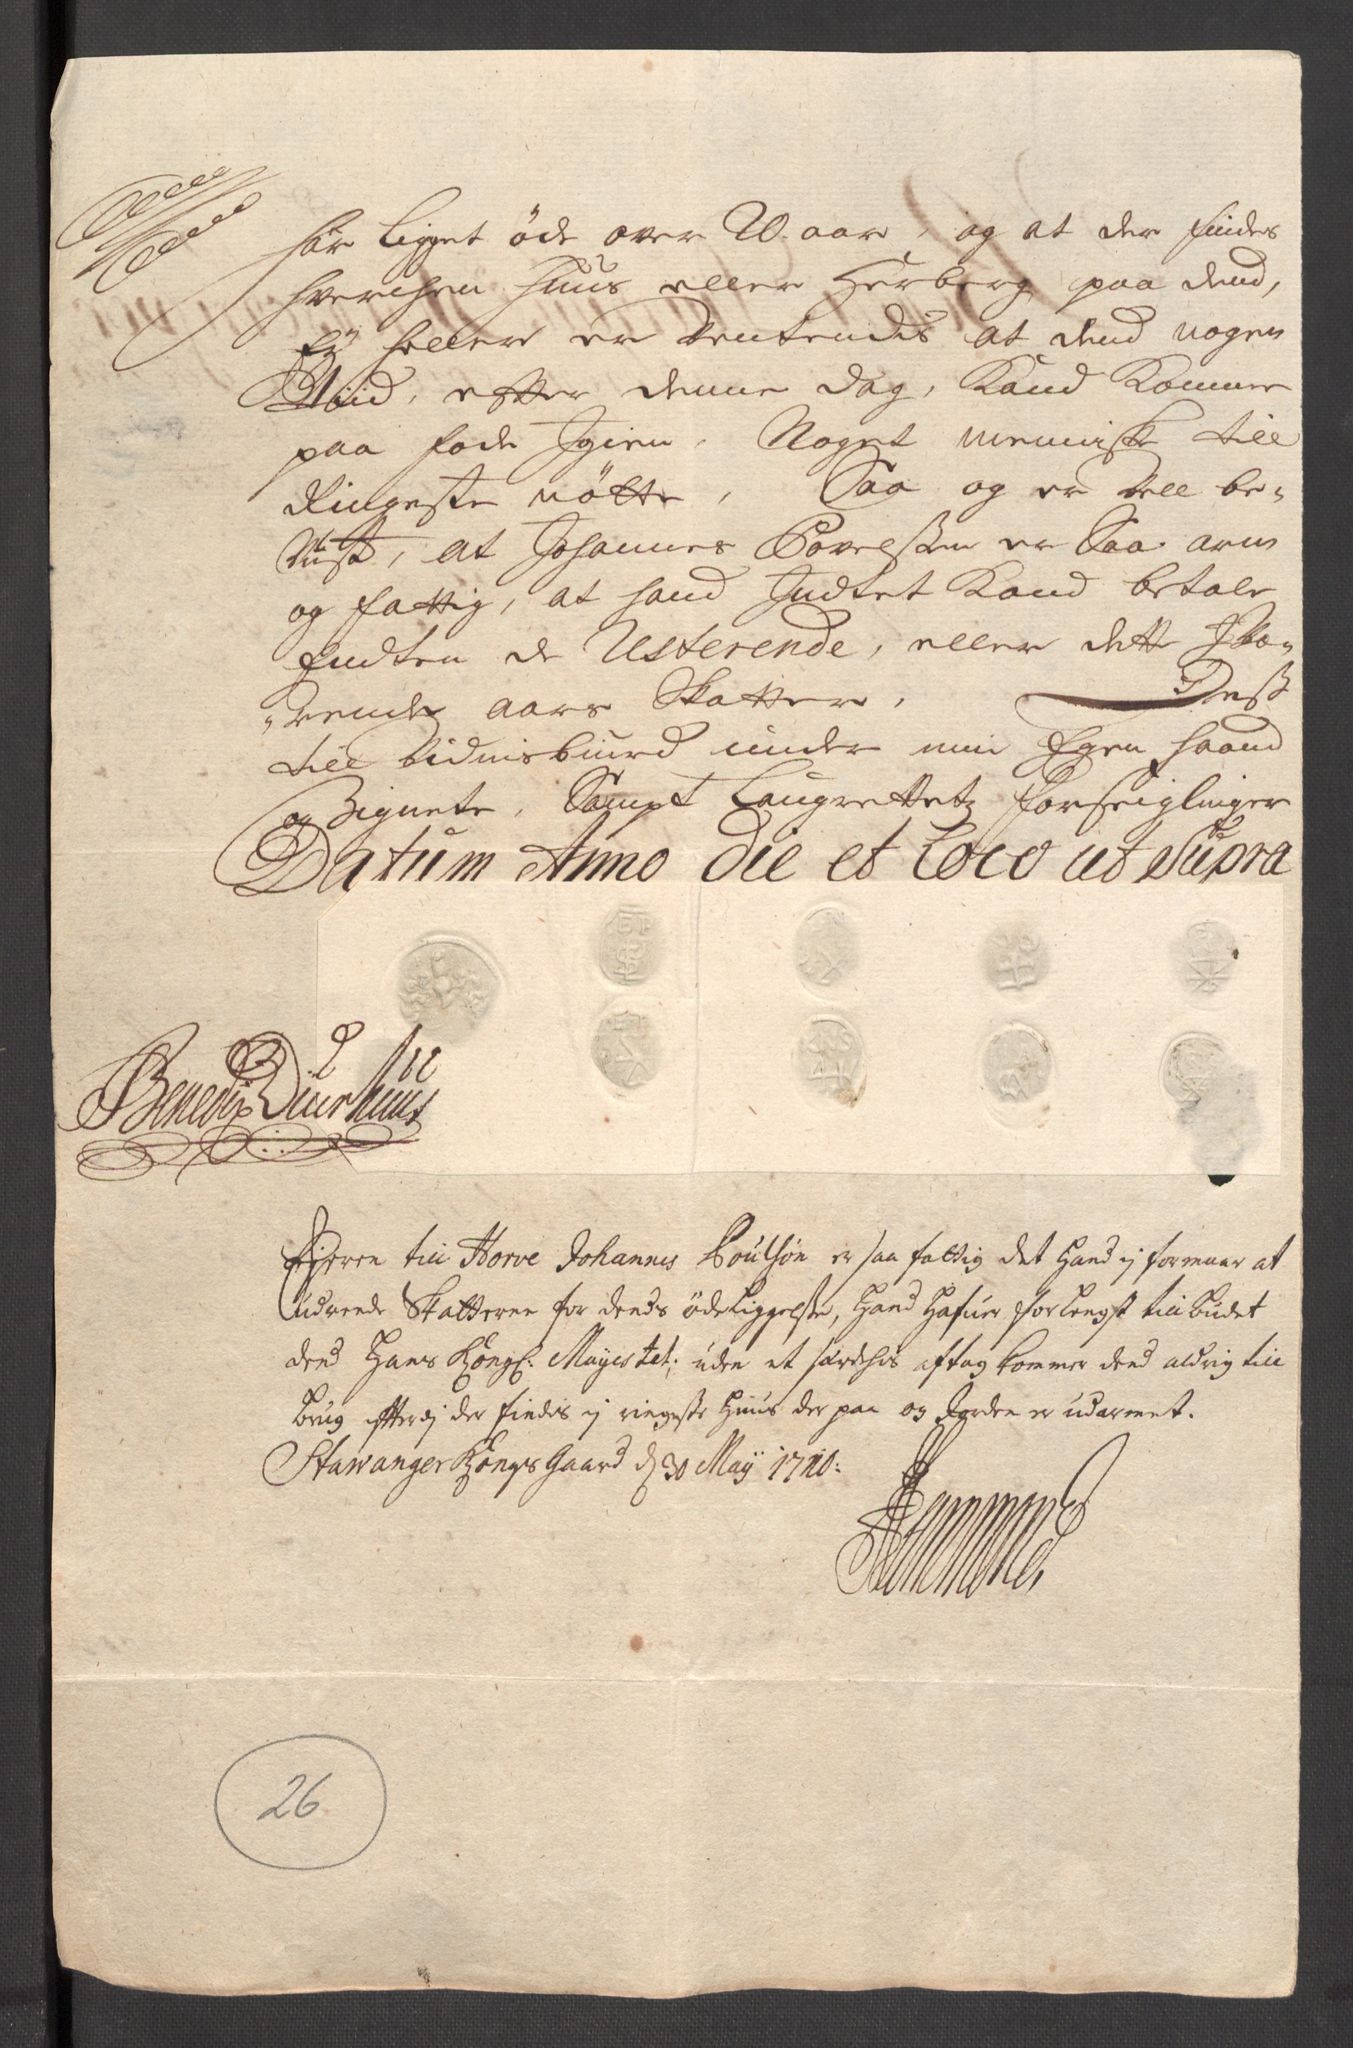 har ligget öde over 20 aar, og at der findes
hverchen Huus eller Herberg paa dend,
Ej heller er Ventendes at dend nogen
Tiid, efter denne dag, Kand Komme
paa fode Igien, Noget menniske till
Ringeste nötte, Saa og er vell be-
vist, at Johannes Povelßen er Saa arm
og fattig, at hand Indtet Kand betale
Endten de Resterende, eller dette
-rende aars Skatter, Deß
till vidnisbiurd under min Egen haand
og Zignete, Sampt Laugrettetz forseiglinger
Datum Anno die et Loco ut Supra
Benedix Diurhuus
Ejeren till Horve Johannes Poulsøn er saa fattig det hand ej formaar at
udreede Skatterne for dends ödeliggelße, hand hafuer for lengst till budet
dend Hans Kongl: Mayestet; uden et særdelis aftag kommer dend aldrig till
brug efterdj der findes ej ringeste Huus der paa og Jorden er udarmet.
Stawanger Kongs Gaard d 30 Maÿ 1710:
Hammond
26